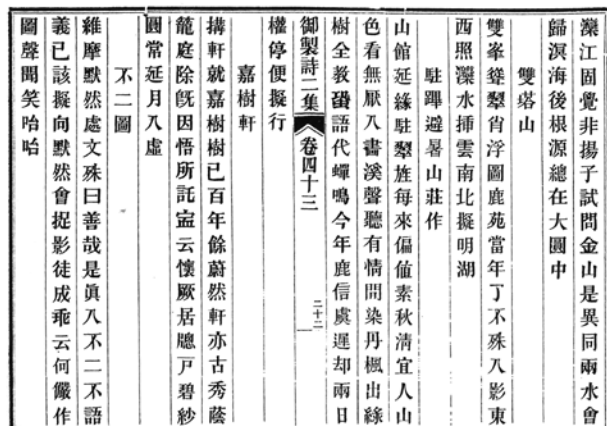 灤江固覺非揚子試問金山是異同兩水會
歸溟海後根源總在大圓中
雙㙮山
雙峯聳翠肖浮圖鹿苑當年丁不殊入影東
西照灤水揷雲南北擬明湖
駐蹕避暑山莊作
山館延緣駐翠旌每來偏値素秋清宜人山
色看無厭入畫溪聲聽有情間染丹楓出綠
樹全教蛩語代蟬鳴今年鹿信虞遲却兩日
權停便擬行
嘉樹軒
搆軒就嘉樹樹已百年餘蔚然軒亦古秀蔭
籠庭除旣因悟所託寍云懷厥居牕戸碧紗
圓常延月入虛
不二圖
維摩默然處文殊曰善哉是眞入不二不語
義已該擬向默然會捉影徒成乖云何儼作
圖聲聞笑咍咍
御製詩二集
卷四十三
二十二